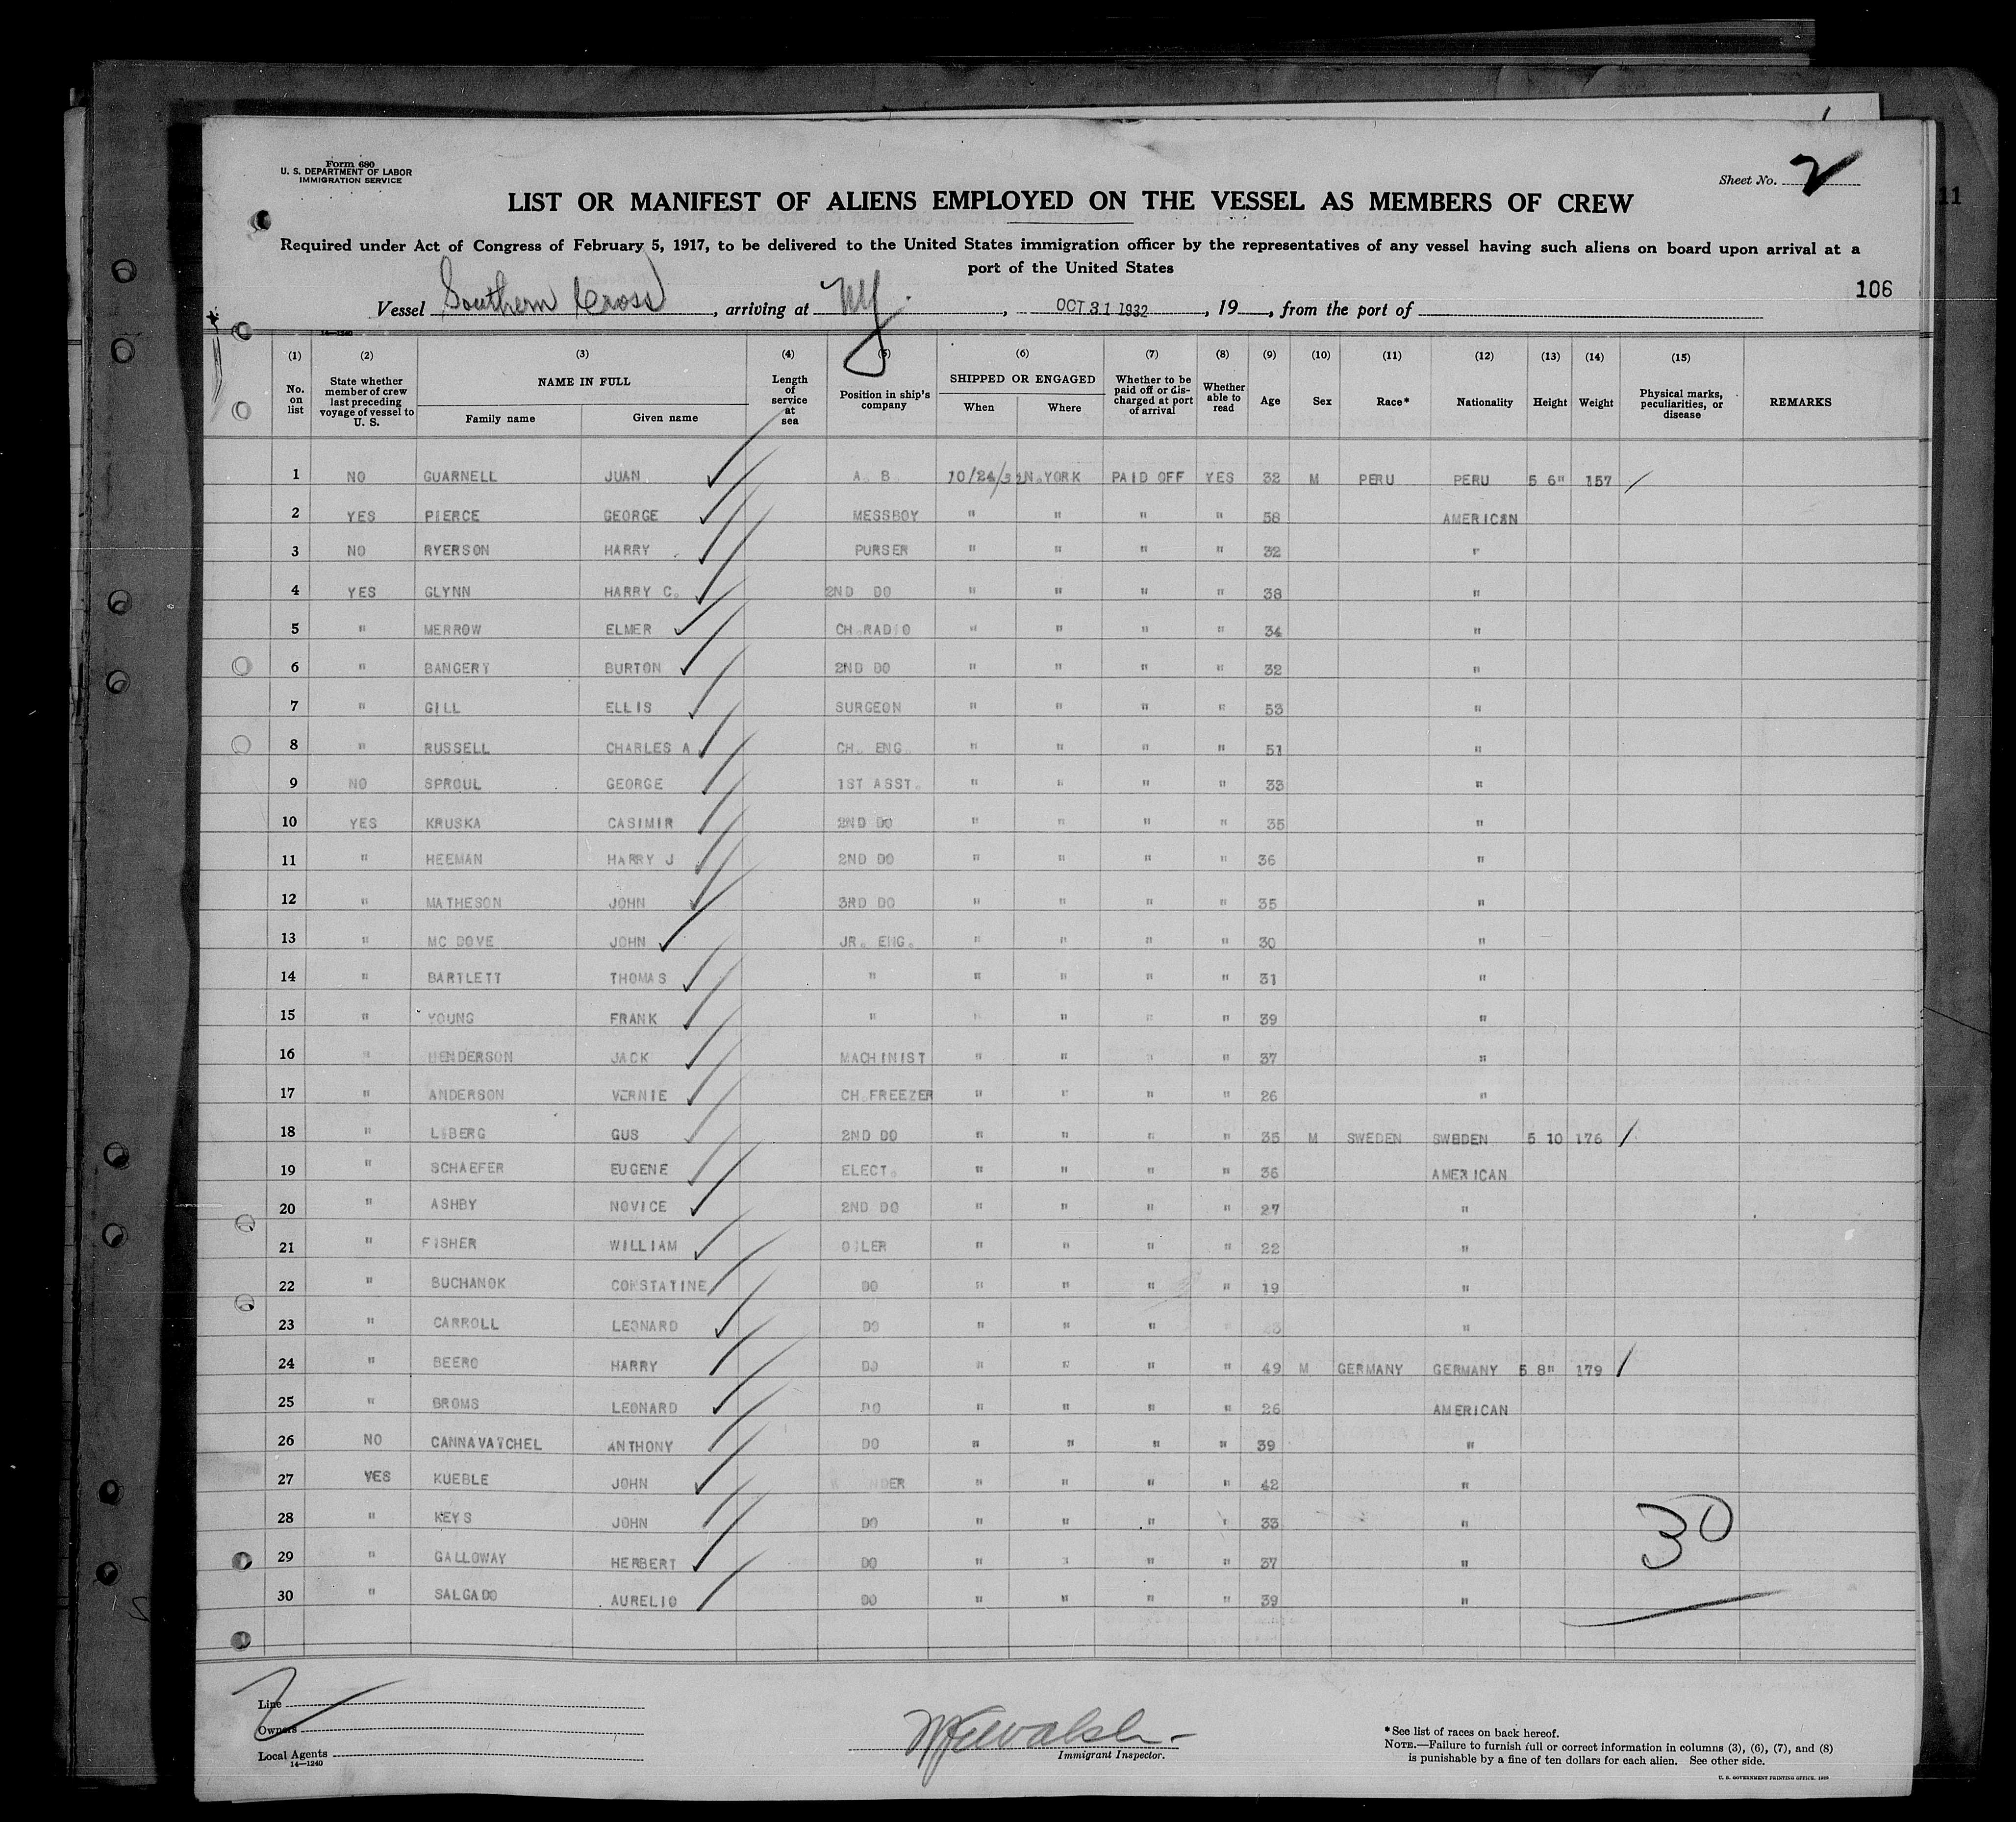 Form 680
U. S. DEPARTMENT OF LABOR
IMMIGRATION SERVICE
Sheet No. 2
LIST OR MANIFEST OF ALIENS EMPLOYED ON THE VESSEL AS MEMBERS OF CREW
11
Required under Act of Congress of February 5, 1917, to be delivered to the United States immigration officer by the representatives of any vessel having such aliens on board upon arrival at a
port of the United States
106
Vessel Southern Cross, arriving at NY., OCT 31 1932, 19, from the port of
14—1240
(1) (2) (3) (4) (5) (6) (7) (8) (9) (10) (11) (12) (13) (14) (15)
No. on list State whether member of crew last preceding voyage of vessel to U. S. NAME IN FULL Family name Given name Length of service at sea Position in ship's company SHIPPED OR ENGAGED When Where Whether to be paid off or discharged at port of arrival Whether able to read Age Sex Race* Nationality Height Weight Physical marks, peculiarities, or disease REMARKS
1 NO GUARNELL JUAN A. B 10/24/32 N.YORK PAID OFF YES 32 M PERU PERU 5 6" 157
2 YES PIERCE GEORGE MESSBOY " " " " 58 AMERICAN
3 NO RYERSON HARRY PURSER " " " " 32 "
4 YES GLYNN HARRY C. 2ND DO " " " " 38 "
5 " MERROW ELMER CH.RADIO " " " " 34 "
6 " BANGERT BURTON 2ND DO " " " " 32 "
7 " GILL ELLIS SURGEON " " " " 53 "
8 " RUSSELL CHARLES A CH. ENG. " " " " 51 "
9 NO SPROUL GEORGE 1ST ASST. " " " " 33 "
10 YES KRUSKA CASIMIR 2ND DO " " " " 35 "
11 " HEEMAN HARRY J 2ND DO " " " " 36 "
12 " MATHESON JOHN 3RD DO " " " " 35 "
13 " MC DOVE JOHN JR. ENG. " " " " 30 "
14 " BARTLETT THOMAS " " " " " 31 "
15 " YOUNG FRANK " " " " " 39 "
16 " HENDERSON JACK MACHINIST " " " " 37 "
17 " ANDERSON VERNIE CH.FREEZER " " " " 26 "
18 " LIBERG GUS 2ND DO " " " " 35 M SWEDEN SWEDEN 5 10 176
19 " SCHAEFER EUGENE ELECT. " " " " 36 AMERICAN
20 " ASHBY NOVICE 2ND DO " " " " 27 "
21 " FISHER WILLIAM OILER " " " " 22 "
22 " BUCHANOK CONSTATINE DO " " " " 19 "
23 " CARROLL LEONARD DO " " " "
24 " BEERO HARRY DO " " " " 49 M GERMANY GERMANY 5 8" 179
25 " BROMS LEONARD DO " " " " 26 AMERICAN
26 NO CANNAVATCHEL ANTHONY DO " " " " 39 "
27 YES KUEBLE JOHN " " " " 42 "
28 " KEYS JOHN DO " " " " 33 "
29 " GALLOWAY HERBERT DO " " " " 37 "
30 " SALGADO AURELIO DO " " " " 39 "
30
Line
Owners
Local Agents
14—1240
Immigrant Inspector.
*See list of races on back hereof.
NOTE.—Failure to furnish full or correct information in columns (3), (6), (7), and (8)
is punishable by a fine of ten dollars for each alien. See other side.
U. S. GOVERNMENT PRINTING OFFICE